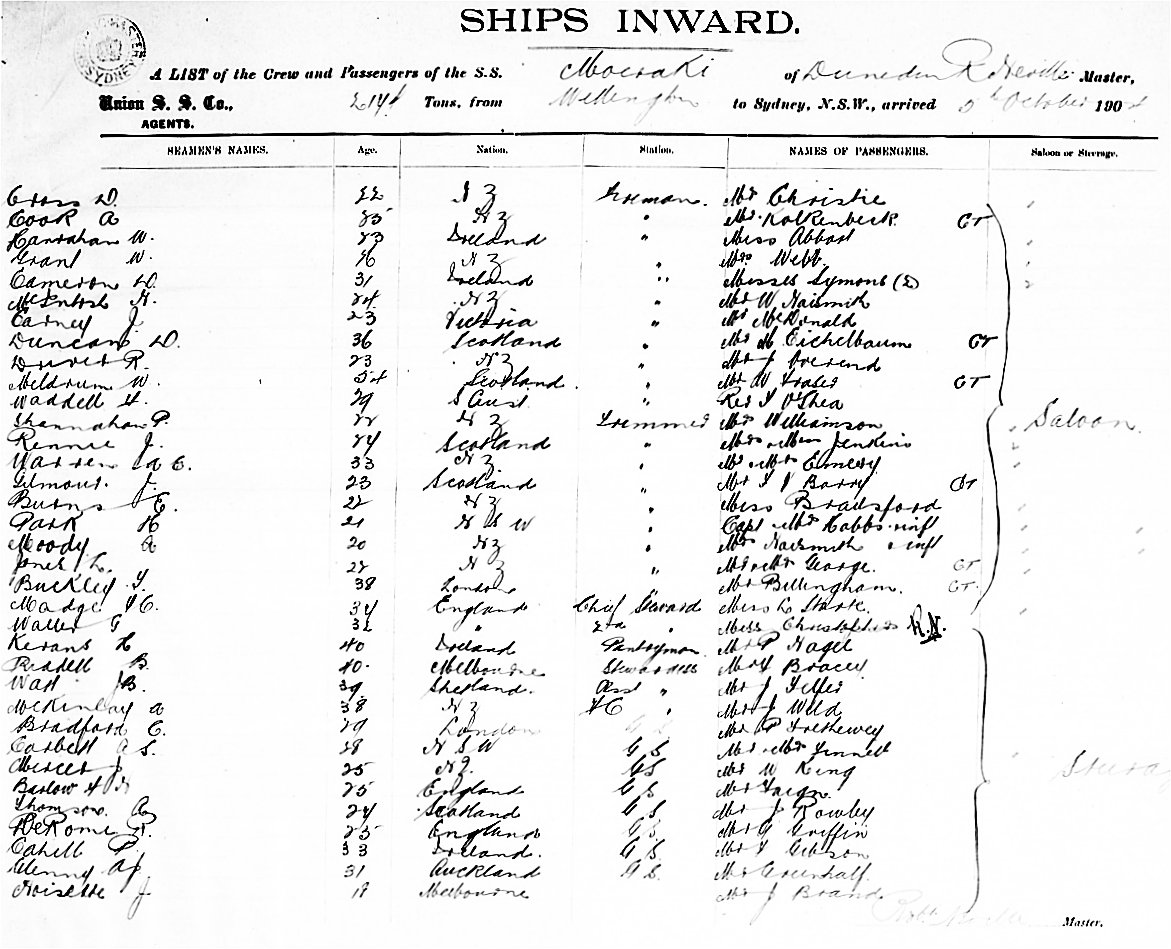 SHIPS INWARD.
A LIST of the Crew and Passengers of the S.S. Moeraki of Dunedin R Neville Master,
Union S. S. Co., Tons, from Wellington to Sydney, N.S.W., arrived 5th October 190
AGENTS.
SEAMEN'S NAMES. Age. Nation. Station. NAMES OF PASSENGERS. Saloon or Steerage.
Cross D. 22 N Z Fireman. Mr Christie
Cook A 25 N Z " Mr Kolkenbeck CT
Hanrahan W. 23 Ireland " Miss Abbott
Grant W. 26 N Z " Mrs Webb.
Cameron D. 31 Ireland " Misses Symons (2)
McIntosh H. 24 N Z " Mr W Naismith
Carney J. 23 Victoria " Mr McDonald
Duncan D. 36 Scotland " Mr M Eichelbaum CT
Driver R. 23 N Z " Mr J Overend
Meldrum W. 54 Scotland. " Mr W Fraser CT
Waddell 29 S Aust. " Rev O'Shea
Shannahan P. 22 N Z Trimmer Mr Williamson Saloon.
Rennie J. 24 Scotland " Mrs Miss Jenkins
Warren E. 33 N Z " Mr Mrs Emery
Gilmour J. 23 Scotland " Mr Barry CT
Burns E. 22 N Z " Miss Bradsford
Park H 21 N S W " Capt Mrs Hobbs inft
Moody A 20 N Z " Mrs Naismith inft
Jones L. 22 N Z " Mr Mrs George. CT
Buckley 38 London " Mr Billingham. CT.
Madge C. 34 England Chief Steward Miss L Stark.
Waller G 32 " 2nd " Miss Christophers R.N.
Kerans H 40 Ireland Pantryman. Mr P Nagel
Riddell B. 40. Melbourne Stewardess Mr Bracey
Watt B. 39 Shetland. Asst " Mr J
McKinlay A 38 N Z " Mr J Wild
Bradford C. 29 London G S Mr P Trethewey
Corbett A S. 28 N S W G S Mr Mrs Finnell
Mercer J 25 N Z. G S Mr W King
Barlow H 25 England G S Mr
Thompson A 24 Scotland G S Mr J Rowley
DeRome 25 England G S Mr G Griffin
Cahill P 33 Ireland. G S Mr Gibson
Glenny A J. 31 Auckland G S. Mr Greenhalf.
Noisette J 18 Melbourne Mr J Brand
Master.